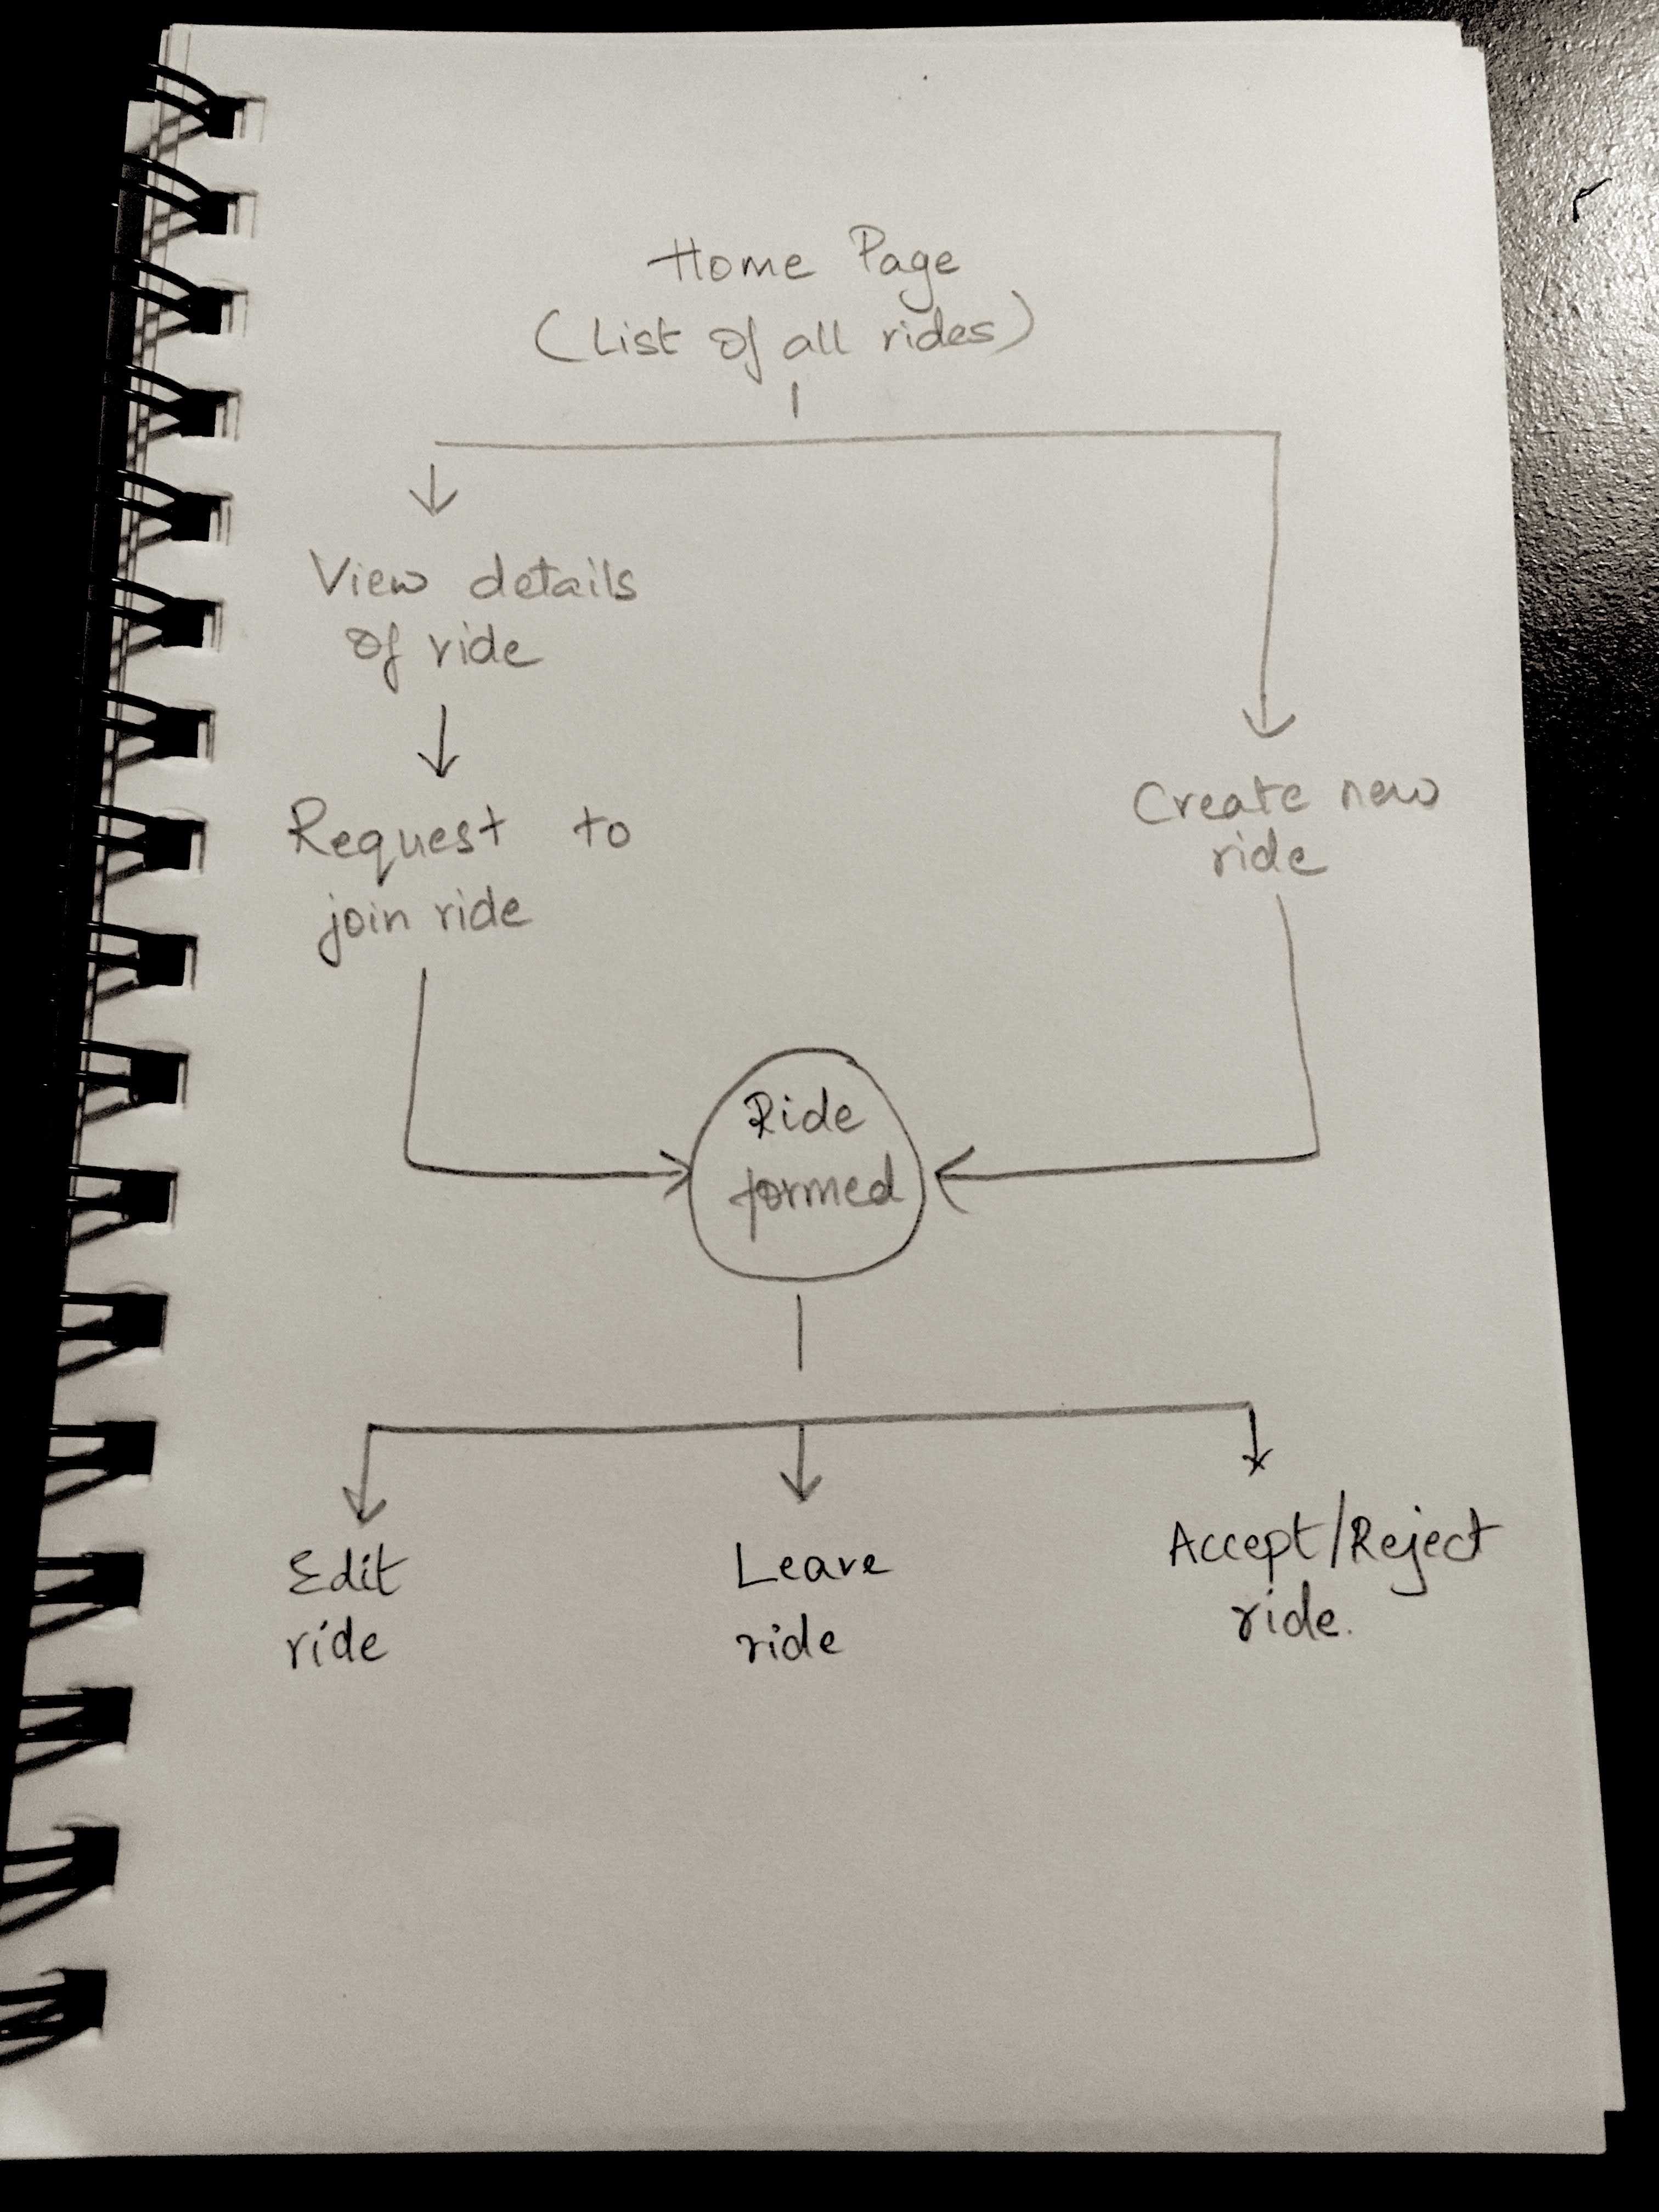 Home Page
(List of all rides)
View details
of ride
Request to
join ride
Create new
ride
Ride
formed
Edit
ride
Leave
ride
Accept/Reject
ride.